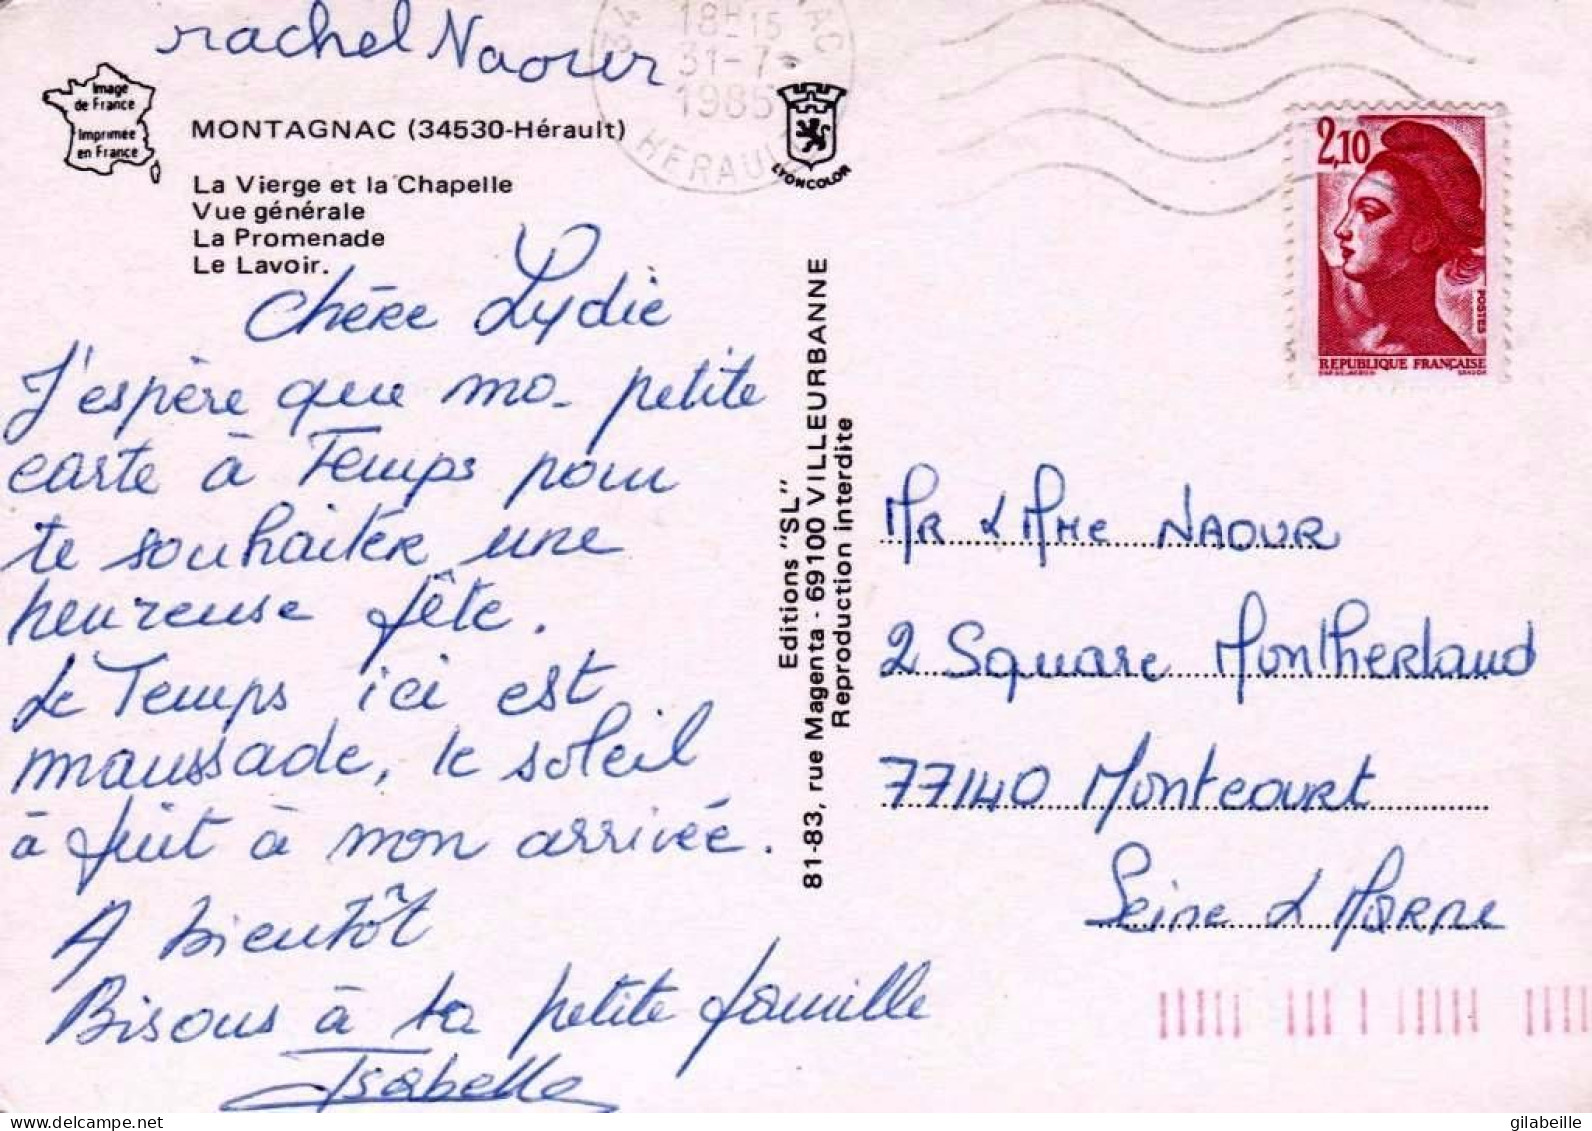 rachel Naour
Image
de France
Imprimée
en France
MONTAGNAC (34530-Hérault)
La Vierge et la Chapelle
Vue générale
La Promenade
Le Lavoir.
Chère Lydie
J'espère que ma petite
carte à Temps pour
te souhaiter une
heureuse fête.
Le Temps ici est
maussade, le soleil
à fuit à mon arrivée.
A bientôt
Bisous à ta petite famille
Isabelle
18H15
31-7
1985
HERAUL
LYONCOLOR
Editions "SL"
81-83, rue Magenta - 69100 VILLEURBANNE
Reproduction interdite
2,10
POSTES
REPUBLIQUE FRANÇAISE
MR & MMe NAOUR
2 Square Montherland
77140 Montcourt
Seine & Marne
gilabeille